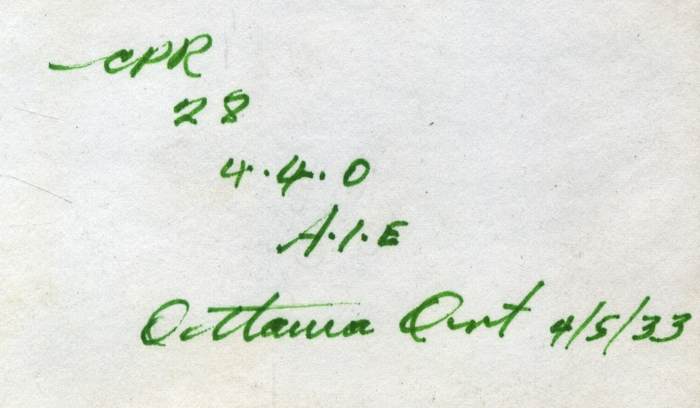 CPR
28
4.4.0
A.1.E
Ottawa Ont 4/5/33